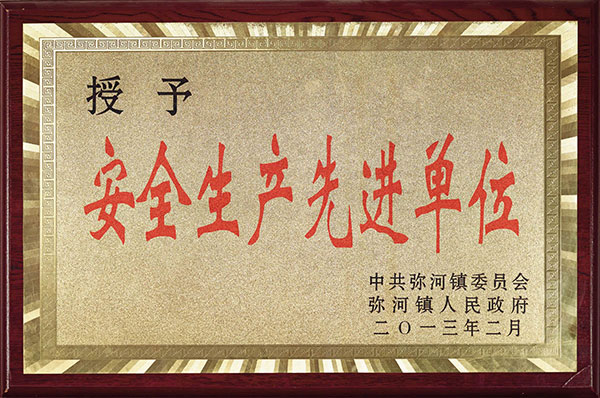 授予
安全生产先进单位
中共弥河镇委员会
弥河镇人民政府
二〇一三年二月